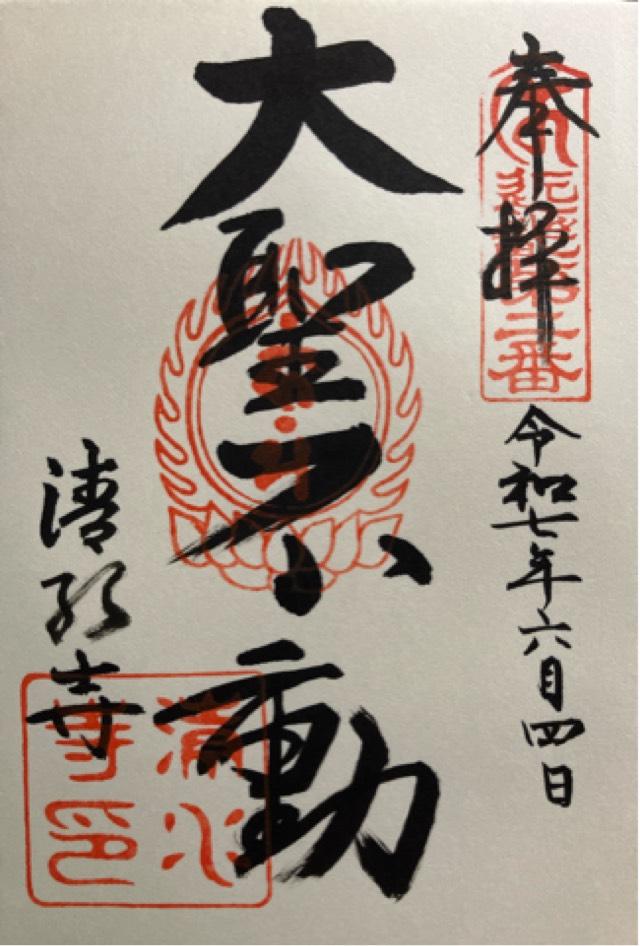 奉拝
近畿第二番
令和七年六月四日
大聖不動
清水寺
清水
寺印